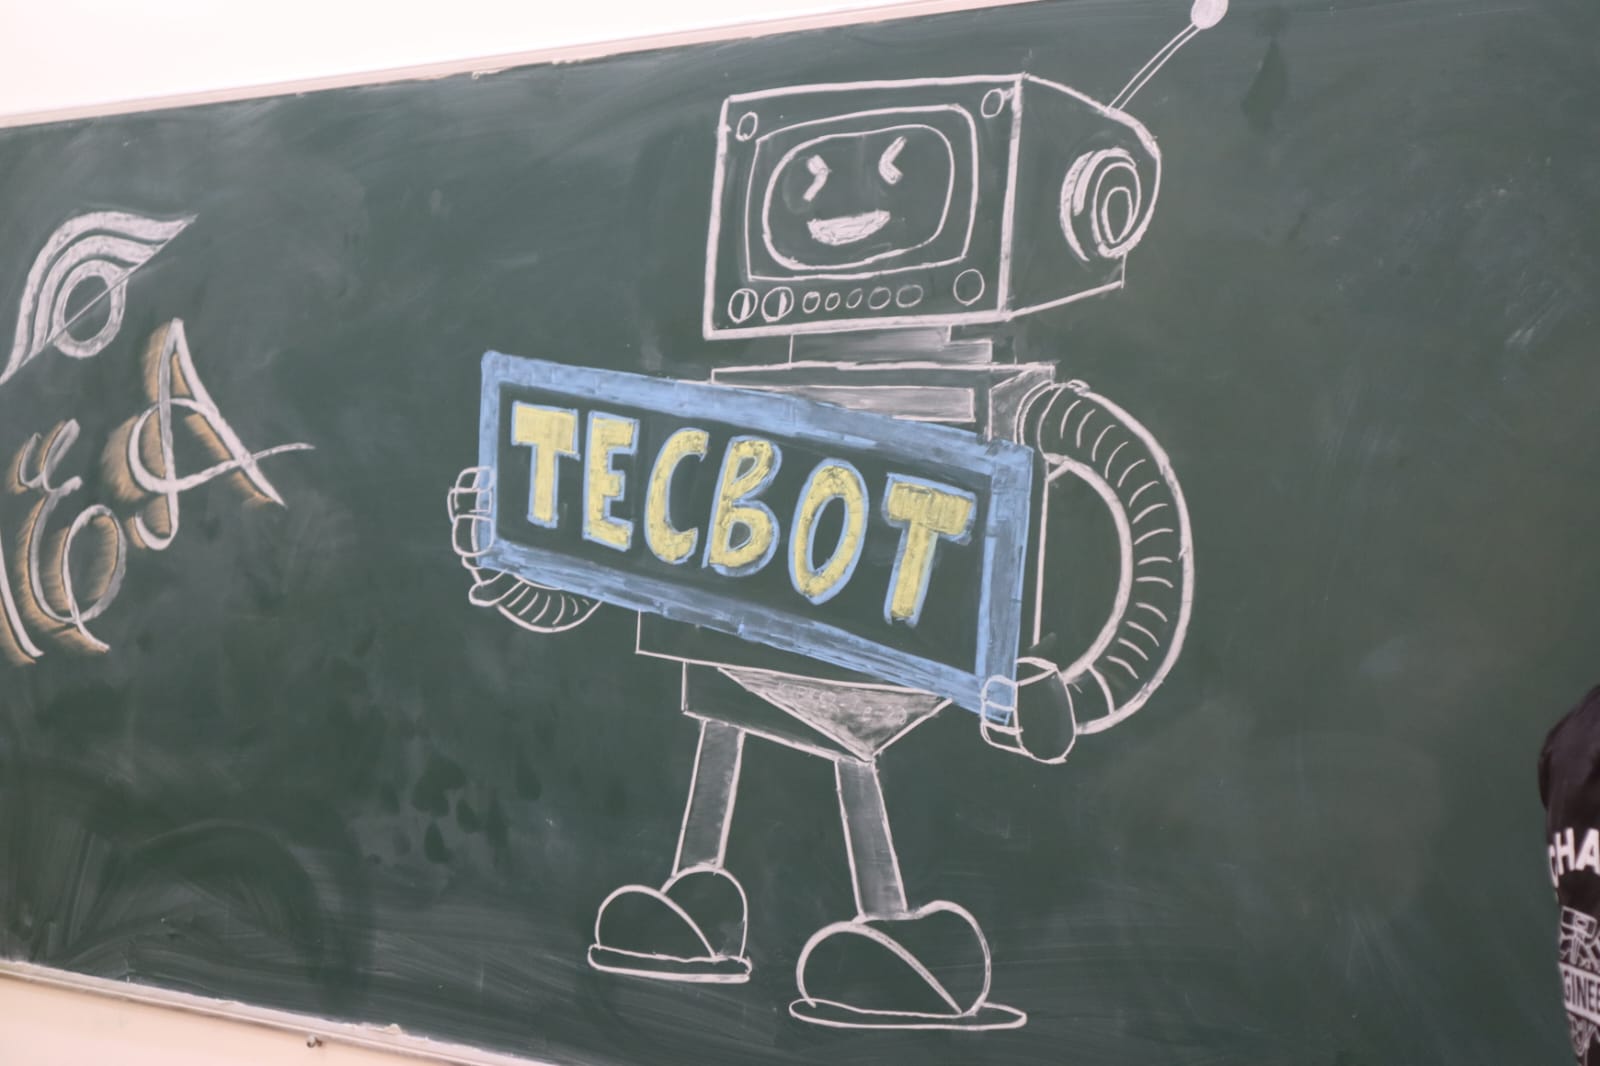 ËA
TECBOT
CHA
GINEE